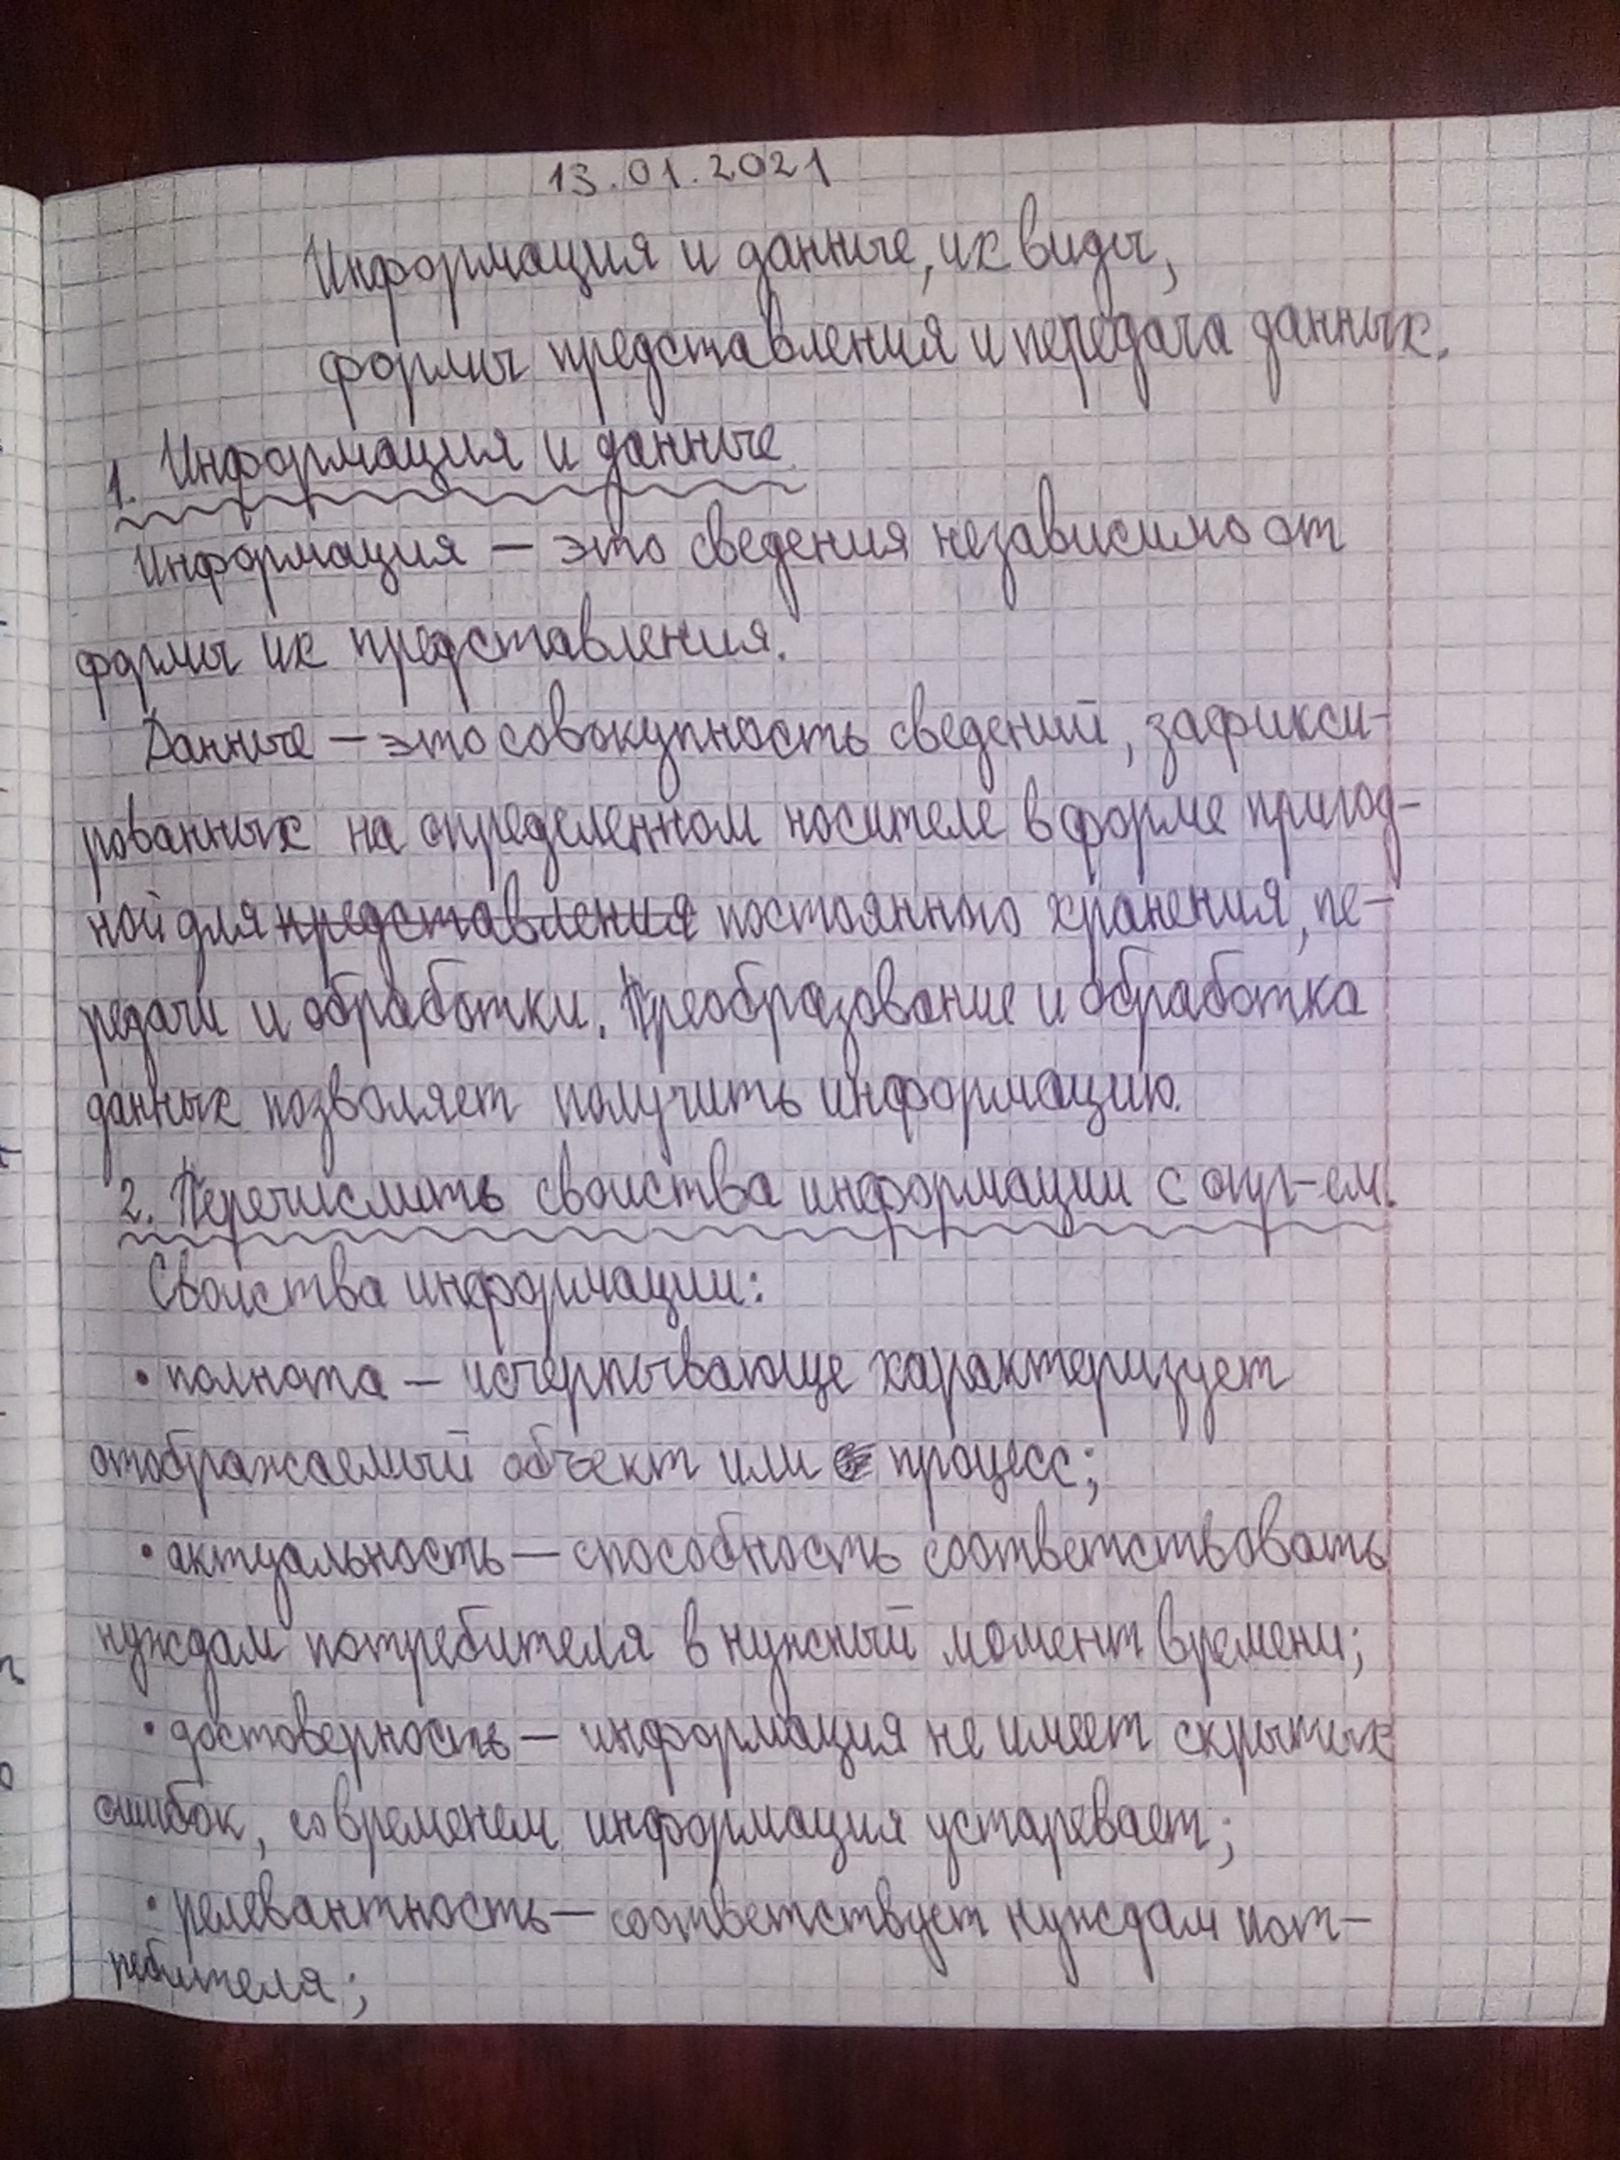 13.01.2021
Информация и данные, их виды,
формы представления и передача данных.
1. Информация и данные
Информация – это сведения независимо от
формы их представления.
Данные – это совокупность сведений, зафикси-
рованных на определенном носителе в форме пригод-
ной для представления постоянного хранения, пе-
редачи и обработки. Преобразование и обработка
данных позволяет получить информацию.
2. Перечислить свойства информации с
Свойства информации:
• полнота – исчерпывающе характеризует
отображаемый объект или процесс;
• актуальность – способность соответствовать
нуждам потребителя в нужный момент времени;
• достоверность – информация не имеет скрытых
ошибок, со временем информация устаревает;
• релевантность – соответствует нуждам пот-
ребителя;